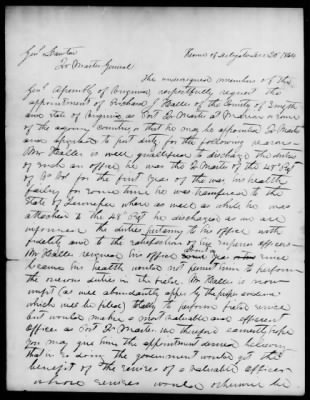 Genl Lawton
Qr Master General
House of Delegates Decr 20th 1864
The undersigned members of the
Genl Assembly of Virginia respectfully request the
appointment of Richard J. Haller of the County of Smyth
and State of Virginia as Post Qr Master at Medna or some
of the agency Country or that he may be appointed Qr Master
and assigned to post duty for the following reasons
Mr Haller is well qualified to discharge the duties
of such an office he was the Qr Master of the 48th Regt
of Va Vol for the first year of the war his health
failing for some time he was transferred to the
State of Tennessee where as well as while he was
attached to the 48th Regt he discharged as we are
informed the duties pertaining to his office with
fidelity and to the satisfaction of his superior officers
Mr Haller resigned his office some since
because his health would not permit him to perform
the onerous duties in the field. Mr Haller is now
unfit (as will abundantly appear by the papers and evidence
which will be filed) totally to perform field service
but would make a most valuable and efficient
officer as Post Qr Master we therefore earnestly hope
you may give him the appointment desired believing
that in so doing the government would get the
benefit of the services of a valuable officer
whose services would otherwise be